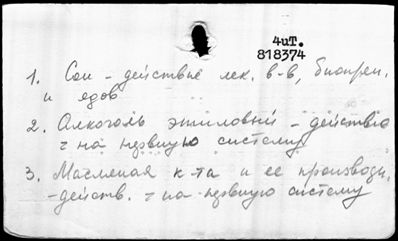 4иТ.
818374
1. Сон - действие лек. в-в, биопреп.
и ядов
2. Алкоголь этиловый - действие
на нервную систему
3. Масляная к-та и ее производн.
- действ. на нервную систему